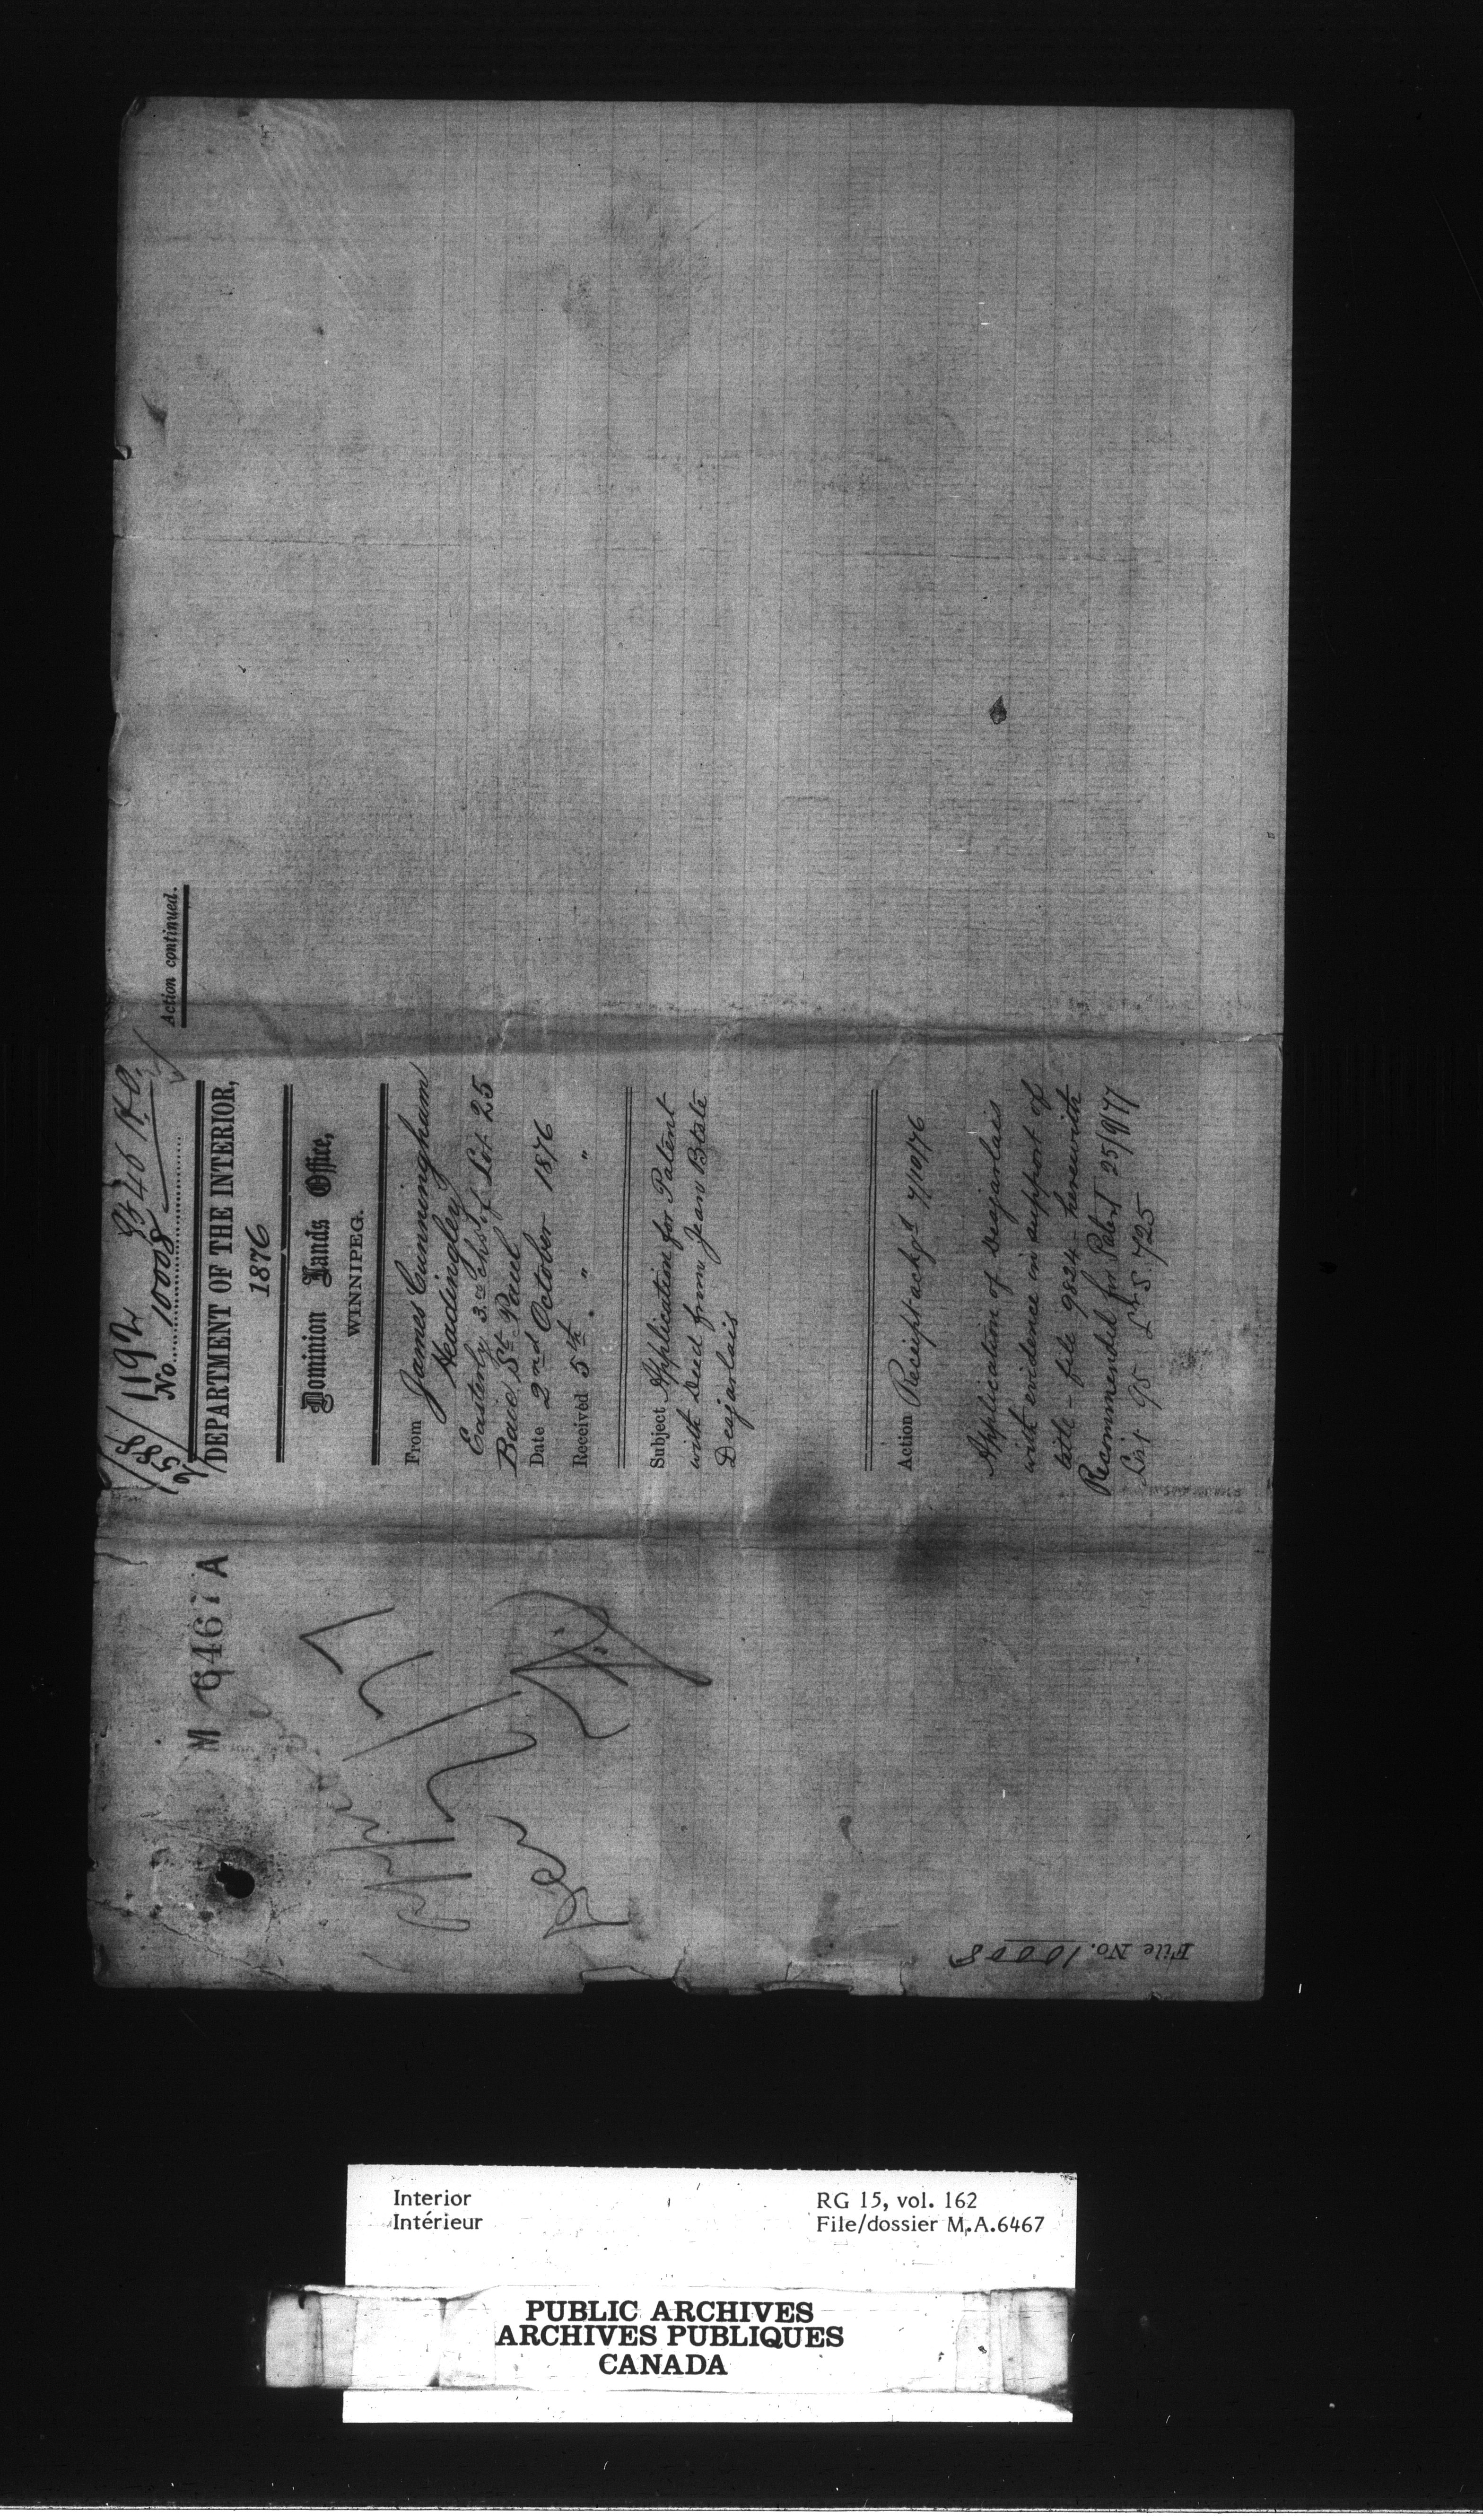 1192 3346 H.O.
No. 10008
DEPARTMENT OF THE INTERIOR,
1876
Dominion Lands Office,
WINNIPEG.
From James Cunningham
Headingley
Easterly 3 chs of Lot 25
Baie St Paul
Date 2nd October 1876
Received 5th " "
Subject Application for Patent
with Deed from Jean Bte
Desjarlais
Action Receipt ackgd 7/10/76
Application of Desjarlais
with evidence in support of
title - file 9824 - herewith
Recommended for Patent 25/9/77
List 95 L & S 725
Action continued.
M 6467 A
File No. 10008
Interior
Intérieur
RG 15, vol. 162
File/dossier M.A.6467
PUBLIC ARCHIVES
ARCHIVES PUBLIQUES
CANADA